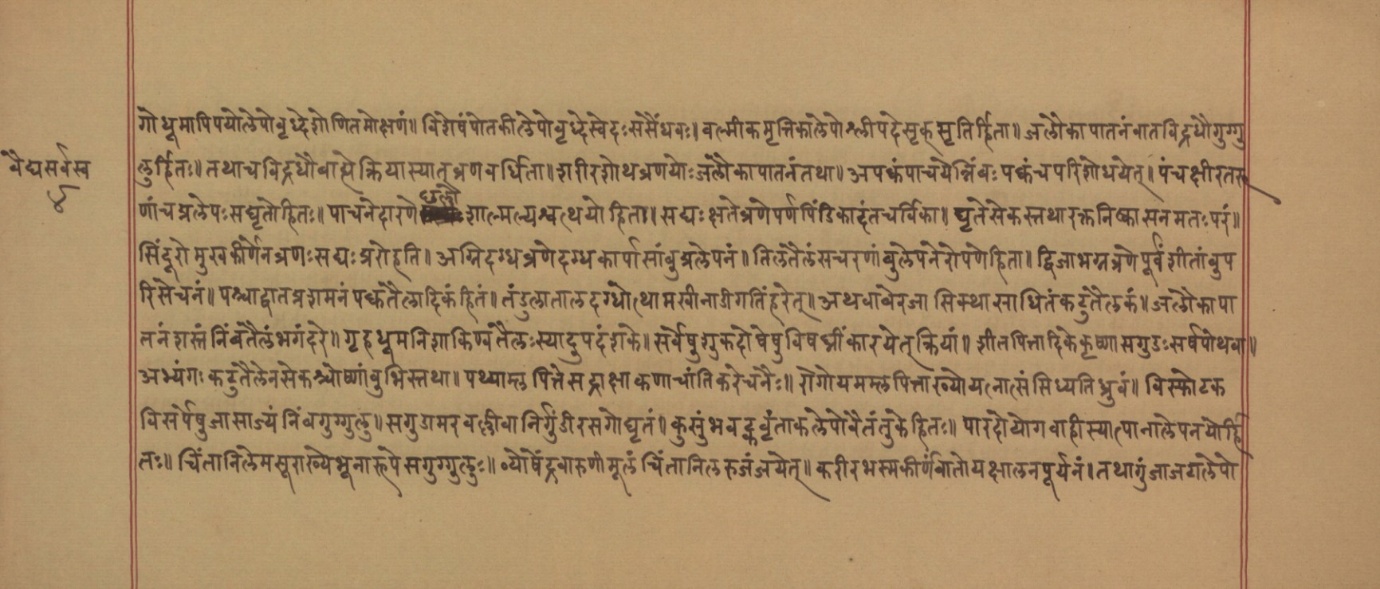 गोधूमापिपयोलेपोवृध्देशोणितमोक्षणं॥ विशेषंपोतकीलेपोवृध्देस्वेदःससैंधवः। वल्मीकमृत्तिकालेपोश्लीपदेसृक्सृतिर्हिता॥ जलौकापातनंवातविद्रधौगुग्गु
वैद्यसर्वस्व
४
लुर्हितः॥ तथाचविद्रधौवाह्येक्रियास्यात्व्रणवर्धिता॥ शरीरशोथव्रणयोःजलौकापातनंतथा॥ अपक्वंपाचयेन्निंबःपक्वंचपरिशोधयेत्॥ पंचक्षीरतरू
णांचप्रलेपःसघृतोहितः॥ पाचनेदारणेधत्तौशाल्मल्यश्वत्थयोहिता॥ सद्यःक्षतेव्रणेपर्णपिंडिकादंतचर्विका॥ घृतेसेकस्तथारक्तनिष्कासनमतःपरं॥
सिंदूरोमुखकीर्णेनव्रणःसद्यःप्ररोहति॥ अग्निदग्धव्रणेदग्धकार्पासांबुप्रलेपनं॥ तिलतैलंसचरणांबुलेपनेरोपणेहिता॥ द्विजाभग्नव्रणेपूर्वंशीतांबुप
रिसेचनं॥ पश्चाद्वातप्रशमनंपक्वतैलादिकंहितं॥ तंडुलातालदग्धोत्थामस्त्रीनाडीगतिंहरेत्॥ अथवाबेरजासिक्थासाधितंकटुतैलकं॥ जलौकापा
तनंशस्तंनिंबतैलंभगंदरे॥ गृहधूमनिशाकिण्वतैलःस्यादुपदंशके॥ सर्वेषुशुकदोषेषुविषघ्नींकारयेत्क्रियां॥ शीतपित्तादिकेकृष्णासगुडःसर्षपोथवा॥
अभ्यंगःकटुतैलेनसेकश्चोष्णांबुभिस्तथा॥ पथ्याम्लपित्तेसद्राक्षाकणाचांतिकरेचनैः॥ रोगोयमम्लपित्ताख्योयत्नात्संसिध्यतिध्रुवं॥ विस्फोटक
विसर्पेषुजासाज्यंनिंबगुग्गुलु॥ सगुडामरवल्लीवानिर्गुंडीरसगोघृतं॥ कुसुंभवद्वर्वृंताकलेपोवैतंतुकेहितः॥ पारदोयोगवाहीस्यात्पानालेपनयोर्हि
तः॥ चिंतानिलेमसूराख्येभूनाह्रपेसगुग्गुलुः॥ व्योषेंद्रवारुणीमूलंचिंतानिलरुजंजयेत्॥ करीरभस्मकीर्णवातोयक्षालनपूर्यनं। तथागुंजाजटालेपो